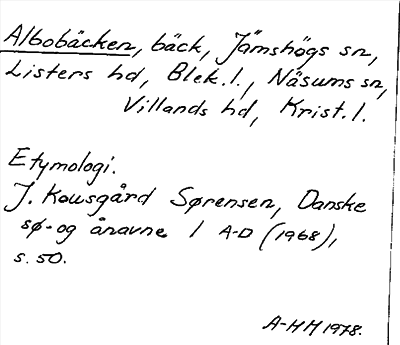 Albobäcken, bäck, Jämshögs sn,
Listers hd, Blek.l., Näsums sn,
Villands hd, Krist.l.
Etymologi.
J. Kousgård Sørensen, Danske
sø- og ånavne 1 A-D (1968),
s. 50.
A-HM 1978.